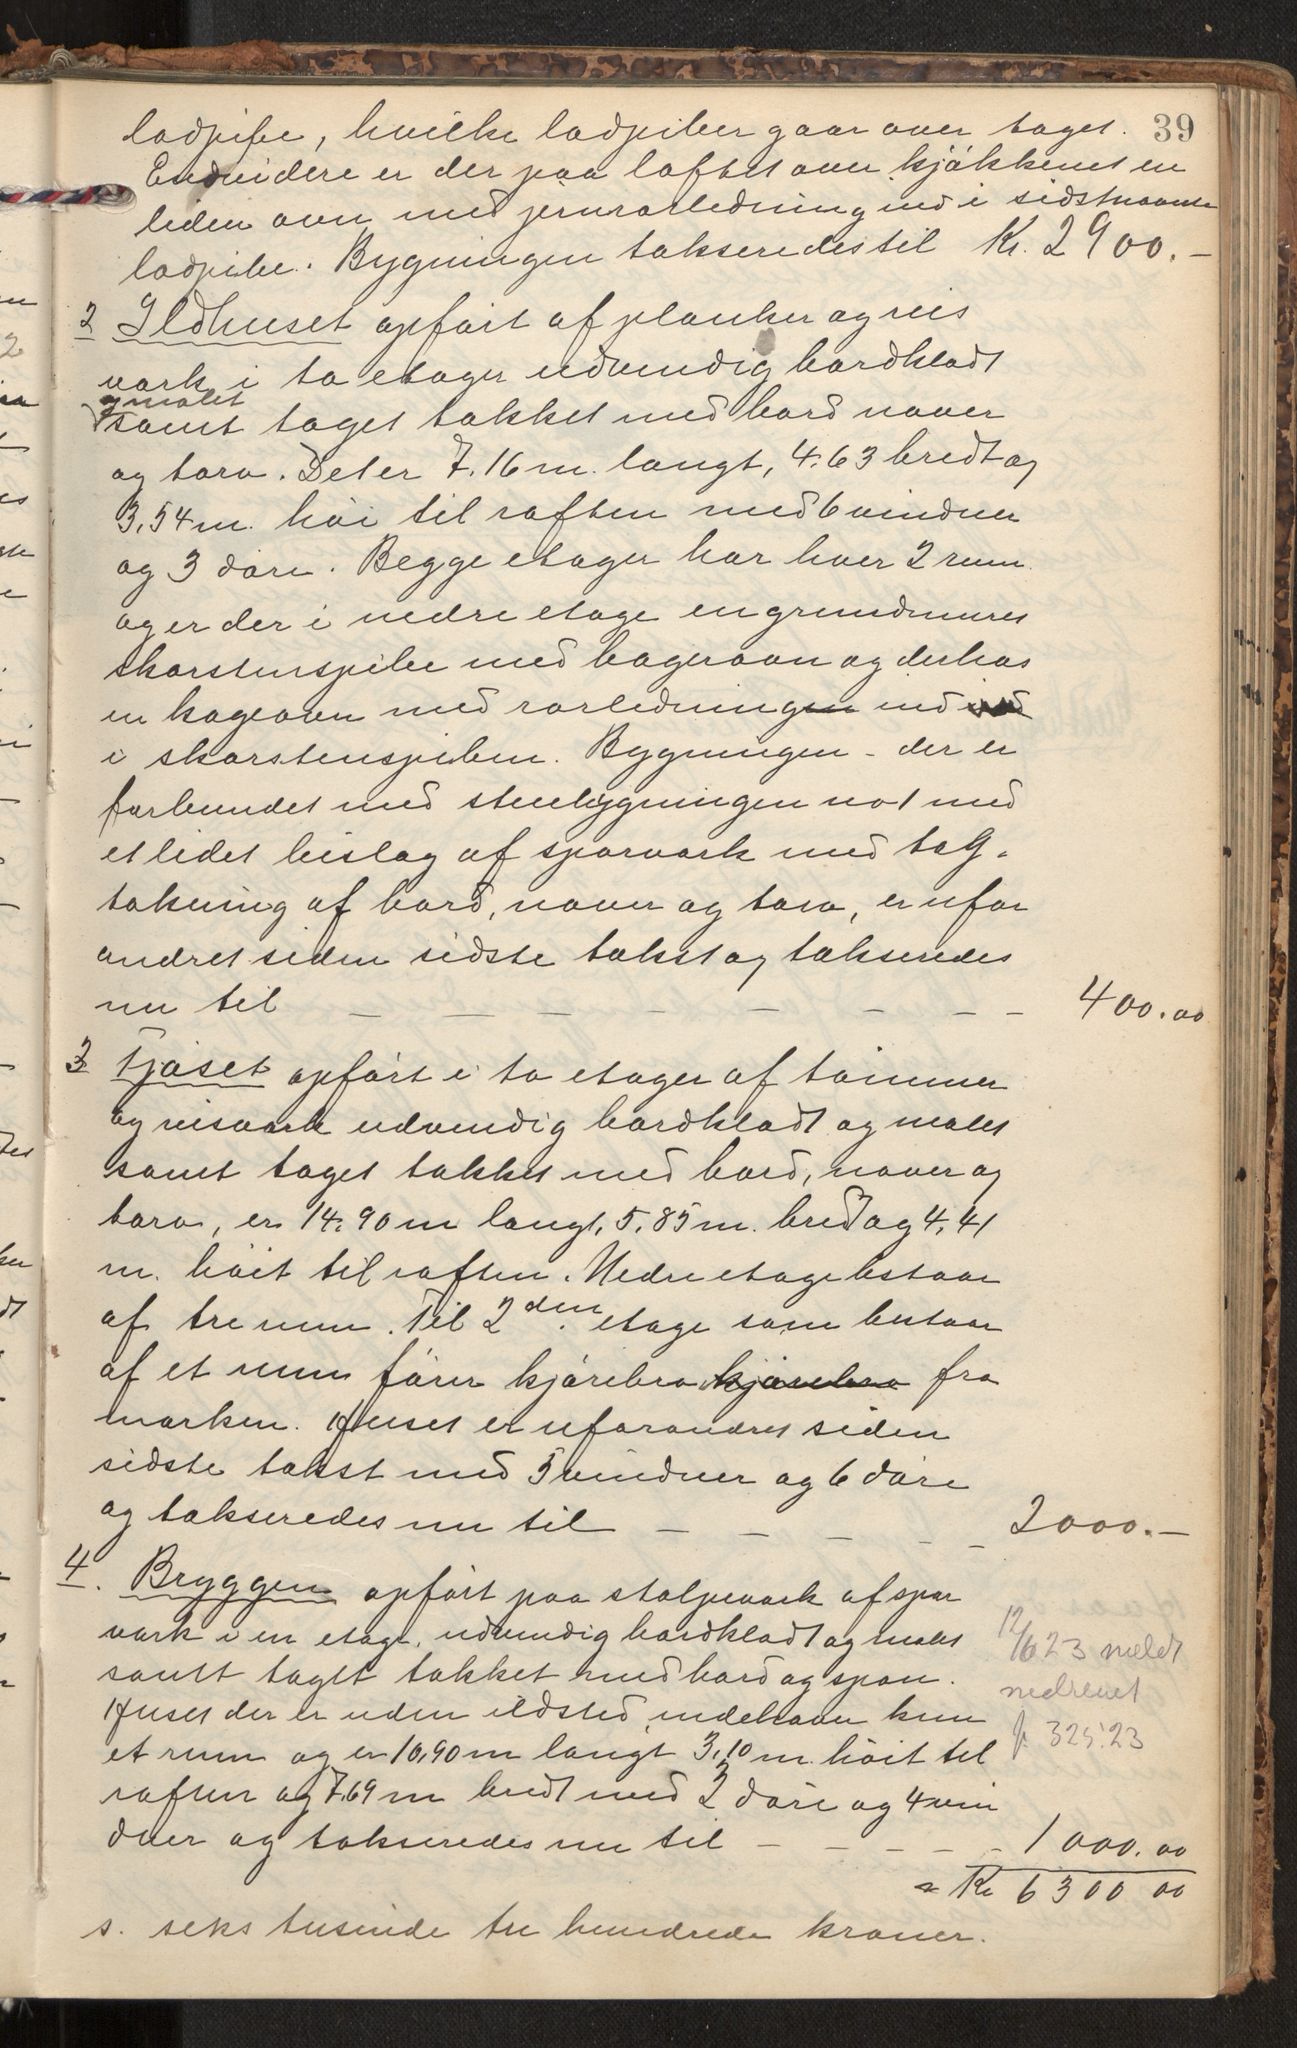 39
ladpibe, hvilke ladpiber gaar over taget.
Endvidere er der paa loftet over kjøkkenet en
liden ovn med jernrørledning ind i sidstnævnte
ladpibe. Bygningen takseredes til Kr. 2900.-
2 Ildhuset opført af planker og reis
værk i to etager udvendig bordklædt
og malet
samt taget tækket med bord næver
og torv. Det er 7.16 m. langt, 4.63 bredt og
3,54 m. høi til raften med 6 vinduer
og 3 døre. Begge etager har hver 2 rum
og er der i nedre etage en grundmuret
skorstenspibe med bagerovn og derhos
en kogeovn med rørledningen ind
i skorstenspiben. Bygningen - der er
forbundet med stuebygningen no 1 med
et lidet bislag af sparværk med tag-
tækning af bord, næver og torv, er ufor
andret siden sidste takst og takseredes
nu til — — — — — — — 400.00
3 Fjøset opført i to etager af tømmer
og reisværk udvendig bordklædt og malet
samt taget tækket med bord, næver og
torv, er 14.90 m langt, 5,85 m. bredt og 4,41
m. høit til raften. Nedre etage bestaar
af tre rum. Til 2den etage som bestaar
af et rum fører kjørebro kjørebro fra
marken. Huset er uforandret siden
sidste takst med 5 vinduer og 6 døre
og takseredes nu til — — — — 2000.—
4. Bryggen opført paa stolpeværk af spar
værk i en etage, udvendig bordklædt og malet
samt taget tækket med bord og spon.
Huset der er uden ildsted, indehaver kun
et rum og er 10,90 m langt 3,10 m. høit til
raften og 7.69 m bredt med 2 døre og 4 vin
duer og takseredes nu til — — — — 1000.00
12/6 23 meldt
nedrevet
j. 325.23
= Kr 6300 00
s. seks tusinde tre hundrede kroner.